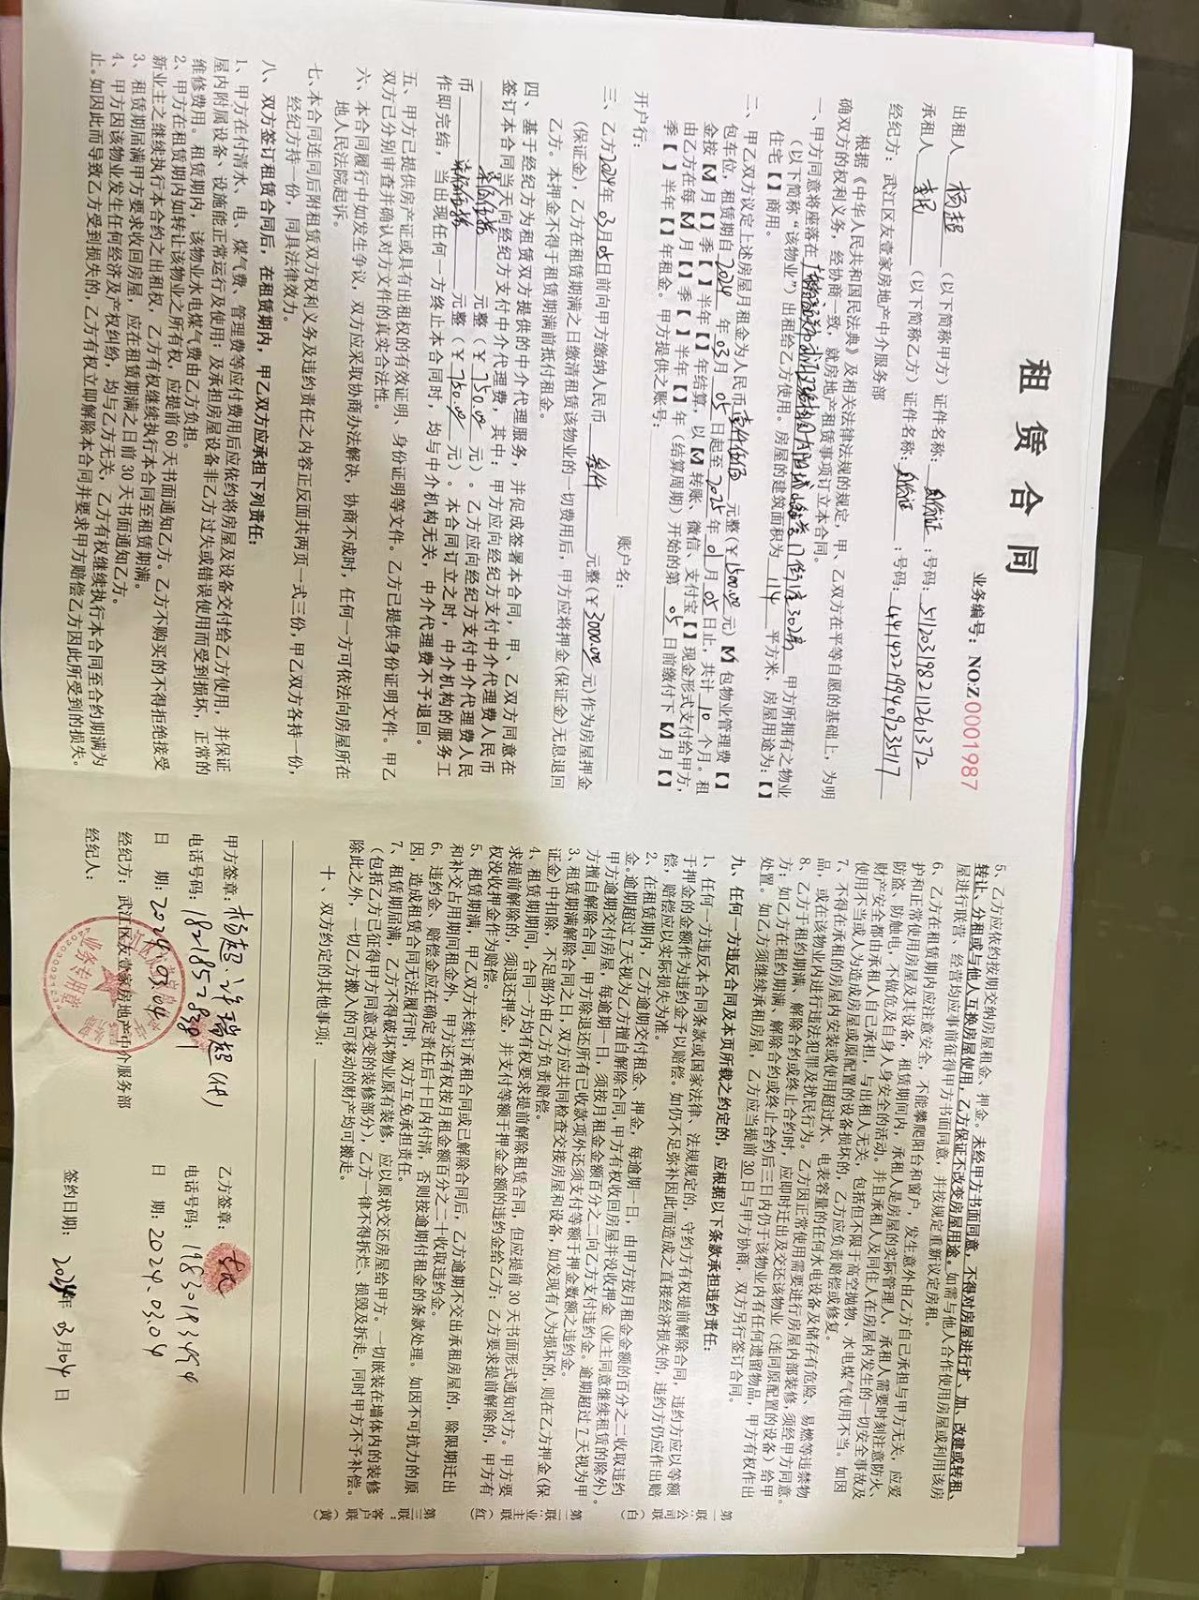 租赁合同
业务编号：NO:Z0001987
出租人 杨超 （以下简称甲方）证件名称：身份证 ；号码：511203198211261372
承租人 李民 （以下简称乙方）证件名称：身份证 ；号码：441422199409235117
经纪方：武江区友壹家房地产中介服务部
根据《中华人民共和国民法典》及相关法律法规的规定，甲、乙双方在平等自愿的基础上，为明
确双方的权利义务，经协商一致，就房地产租赁事项订立本合同。
一、甲方同意将座落在 302房 甲方所拥有之物业
（以下简称“该物业”）出租给乙方使用。房屋的建筑面积为 114 平方米，房屋用途为：【】
住宅【】商用。
二、甲乙双方议定上述房屋月租金为人民币 壹仟伍佰 元整（￥1500.00元）【√】包物业管理费【】
包车位，租赁期自2024年03月05日起至2025年01月05日止，共计10个月。租
金按【√】月【】季【】半年【】年结算，以【√】转账、微信、支付宝【】现金形式支付给甲方，
由乙方在每【√】月【】季【】半年【】年（结算周期）开始的第 05 日前缴付下【√】月【】
季【】半年【】年租金。甲方提供之账号：
开户行： 账户名：
三、乙方2024年03月05日前向甲方缴纳人民币 叁仟 元整（￥3000.00元）作为房屋押金
（保证金），乙方在租赁期满之日缴清租赁该物业的一切费用后，甲方应将押金（保证金）无息退回
乙方。本押金不得于租赁期满前抵付租金。
四、基于经纪方为租赁双方提供的中介代理服务，并促成签署本合同，甲、乙双方同意在
签订本合同当天向经纪方支付中介代理费，其中：甲方应向经纪方支付中介代理费人民币
柒佰伍拾 元整（￥750.00元）。乙方应向经纪方支付中介代理费人民
币 柒佰伍拾 元整（￥750.00元）。本合同订立之时，中介机构的服务工
作即完结，当出现任何一方终止本合同时，均与中介机构无关，中介代理费不予退回。
五、甲方已提供房产证或具有出租权的有效证明、身份证明等文件。乙方已提供身份证明文件。甲乙
双方已分别审查并确认对方文件的真实合法性。
六、本合同履行中如发生争议，双方应采取协商办法解决，协商不成时，任何一方可依法向房屋所在
地人民法院起诉。
七、本合同连同后附租赁双方权利义务及违约责任之内容正反面共两页一式三份，甲乙双方各持一份，
经纪方持一份，同具法律效力。
八、双方签订租赁合同后，在租赁期内，甲乙双方应承担下列责任：
1、甲方在付清水、电、煤气费、管理费等应付费用后应依约将房屋及设备交付给乙方使用，并保证
屋内附属设备、设施能正常运行及使用；及承担房屋设备非乙方过失或错误使用而受到损坏，正常的
维修费用。租赁期内，该物业水电煤气费由乙方负担。
2、甲方在租赁期内如转让该物业之所有权，应提前60天书面通知乙方。乙方不购买的不得拒绝接受
新业主之继续执行本合约之出租权，乙方有权继续执行本合同至租赁期满。
3、租赁期届满甲方要求收回房屋，应在租赁期满之日前30天书面通知乙方。
4、甲方因该物业发生任何经济及产权纠纷，均与乙方无关，乙方有权继续执行本合同至合约期满为
止。如因此而导致乙方受到损失的，乙方有权立即解除本合同并要求甲方赔偿乙方因此所受到的损失。
5、乙方应依约按期交纳房屋租金、押金。未经甲方书面同意，不得对房屋进行扩、加、改建或转租、
转让、分租或与他人互换房屋使用，乙方保证不改变房屋用途。如需与他人合作使用房屋或利用该房
屋进行联营、经营均应事前征得甲方书面同意，并按规定重新议定房租。
6、乙方在租赁期内应注意安全，不能攀爬阳台和窗户，发生意外由乙方自己承担与甲方无关，应爱
护和正常使用房屋及其设备，租赁期间内，承租人是房屋的实际管理人，承租人需要时刻注意防火、
防盗、防触电，不做危及自身人身安全的活动，并且承租人及同住人在房屋内发生的一切安全事故及
财产安全都由承租人自己承担，与出租人无关，包括但不限于高空抛物、水电煤气使用不当。如因
使用不当或人为造成房屋或原配置的设备损坏的，乙方应负责赔偿或修复。
7、不得在承租的房屋内安装或使用超过水、电表容量的任何水电设备及储存有危险、易燃等违禁物
品，或在该物业内进行违法犯罪及扰民行为。乙方因正常使用需要进行房屋内部装修，须经甲方同意。
8、乙方于租约期满、解除合约或终止合约时，应即时迁出及交还该物业（连同原配置的设备）给甲
方；如乙方在租约期满、解除合约或终止合约后三日内仍于该物业内有任何遗留物品，甲方有权作出
处置。如乙方须继续承租房屋，乙方应当提前30日与甲方协商，双方另行签订合同。
九、任何一方违反合同及本页所载之约定的，应根据以下条款承担违约责任：
1、任何一方违反本合同条款或国家法律、法规规定的，守约方有权提前解除合同，违约方应以等额
于押金的金额作为违约金予以赔偿。如仍不足弥补因此而造成之直接经济损失的，违约方仍应作出赔
偿，赔偿应以实际损失为准。
2、在租赁期内，乙方逾期交付租金、押金，每逾期一日，由甲方按月租金金额的百分之二收取违约
金。逾期超过7天视为乙方擅自解除合同，甲方有权收回房屋并没收押金（业主同意继续租赁的除外）。
甲方逾期交付房屋，每逾期一日，须按月租金金额百分之二向乙方支付违约金。逾期超过7天视为甲
方擅自解除合同，甲方除退还所有已收款项外还须支付等额于押金数额之违约金。
3、租赁期满解除合同之日，双方应共同检查交接房屋和设备，如发现有人为损坏的，则在乙方押金（保
证金）中扣除，不足部分由乙方负责赔偿。
4、租赁期期间，合同一方均有权要求提前解除租赁合同，但应提前30天书面形式通知对方。甲方要
求提前解除的，须退还押金，并支付等额于押金金额的违约金给乙方；乙方要求提前解除的，甲方有
权没收押金作为赔偿。
5、租赁期满，甲乙双方未续订承租合同或已解除合同后，乙方逾期不交出承租房屋的，除限期迁出
和补交占用期间租金外，甲方还有权按月租金额百分之二十收取违约金。
6、违约金、赔偿金应在确定责任后十日内付清，否则按逾期付租金的条款处理。如因不可抗力的原
因，造成租赁合同无法履行时，双方互免承担责任。
7、租赁期届满，乙方不得破坏物业原有装修，应以原状交还房屋给甲方。一切嵌装在墙体内的装修
（包括乙方已征得甲方同意改变的装修部分），乙方一律不得拆烂、损毁及拆走，同时甲方不予补偿。
除此之外，一切乙方搬入的可移动的财产均可搬走。
十、双方约定的其他事项：
甲方签章：杨超.许瑞超(代) 乙方签章：李民
电话号码：18218528381 电话号码：19830193494
日 期：2024.03.04 日 期：2024.03.04
经纪方：武江区友壹家房地产中介服务部
经纪人： 签约日期：2024年03月04日
第一联：公司（白）
第二联：业主（红）
第三联：客户（黄）
业务专用章